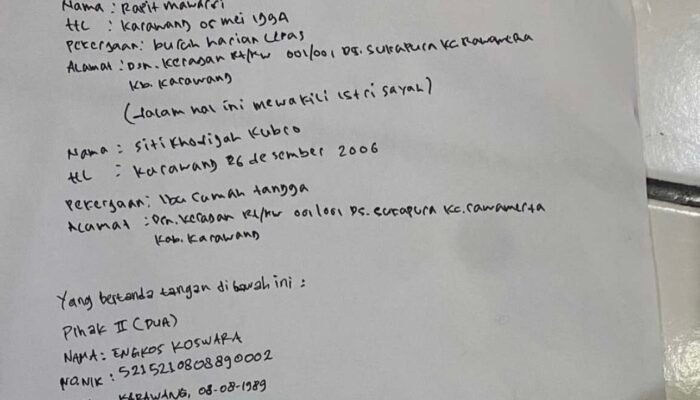 Nama : Rapit mawardi
ttL : Karawang 05 mei 1994
Pekerjaan: buruh harian Lepas
Alamat : Dsn. Kerasan Rt/Rw 001/001 Ds. Sukapura Kc. Rawamerta
Kb. Karawang
(dalam hal ini mewakili istri sayah)
Nama : Siti Khodijah Kubro
ttL : Karawang 26 desember 2006
Pekerjaan: Ibu rumah tangga
Alamat : Dsn. Kerasan Rt/Rw 001/001 Ds. Sukapura Kc. rawamerta
Kab. Karawang
Yang bertanda tangan dibawah ini :
Pihak II (DUA)
NAMA : ENGKOS KOSWARA
NO NIK : 5215210808890002
KARAWANG, 08-08-1989